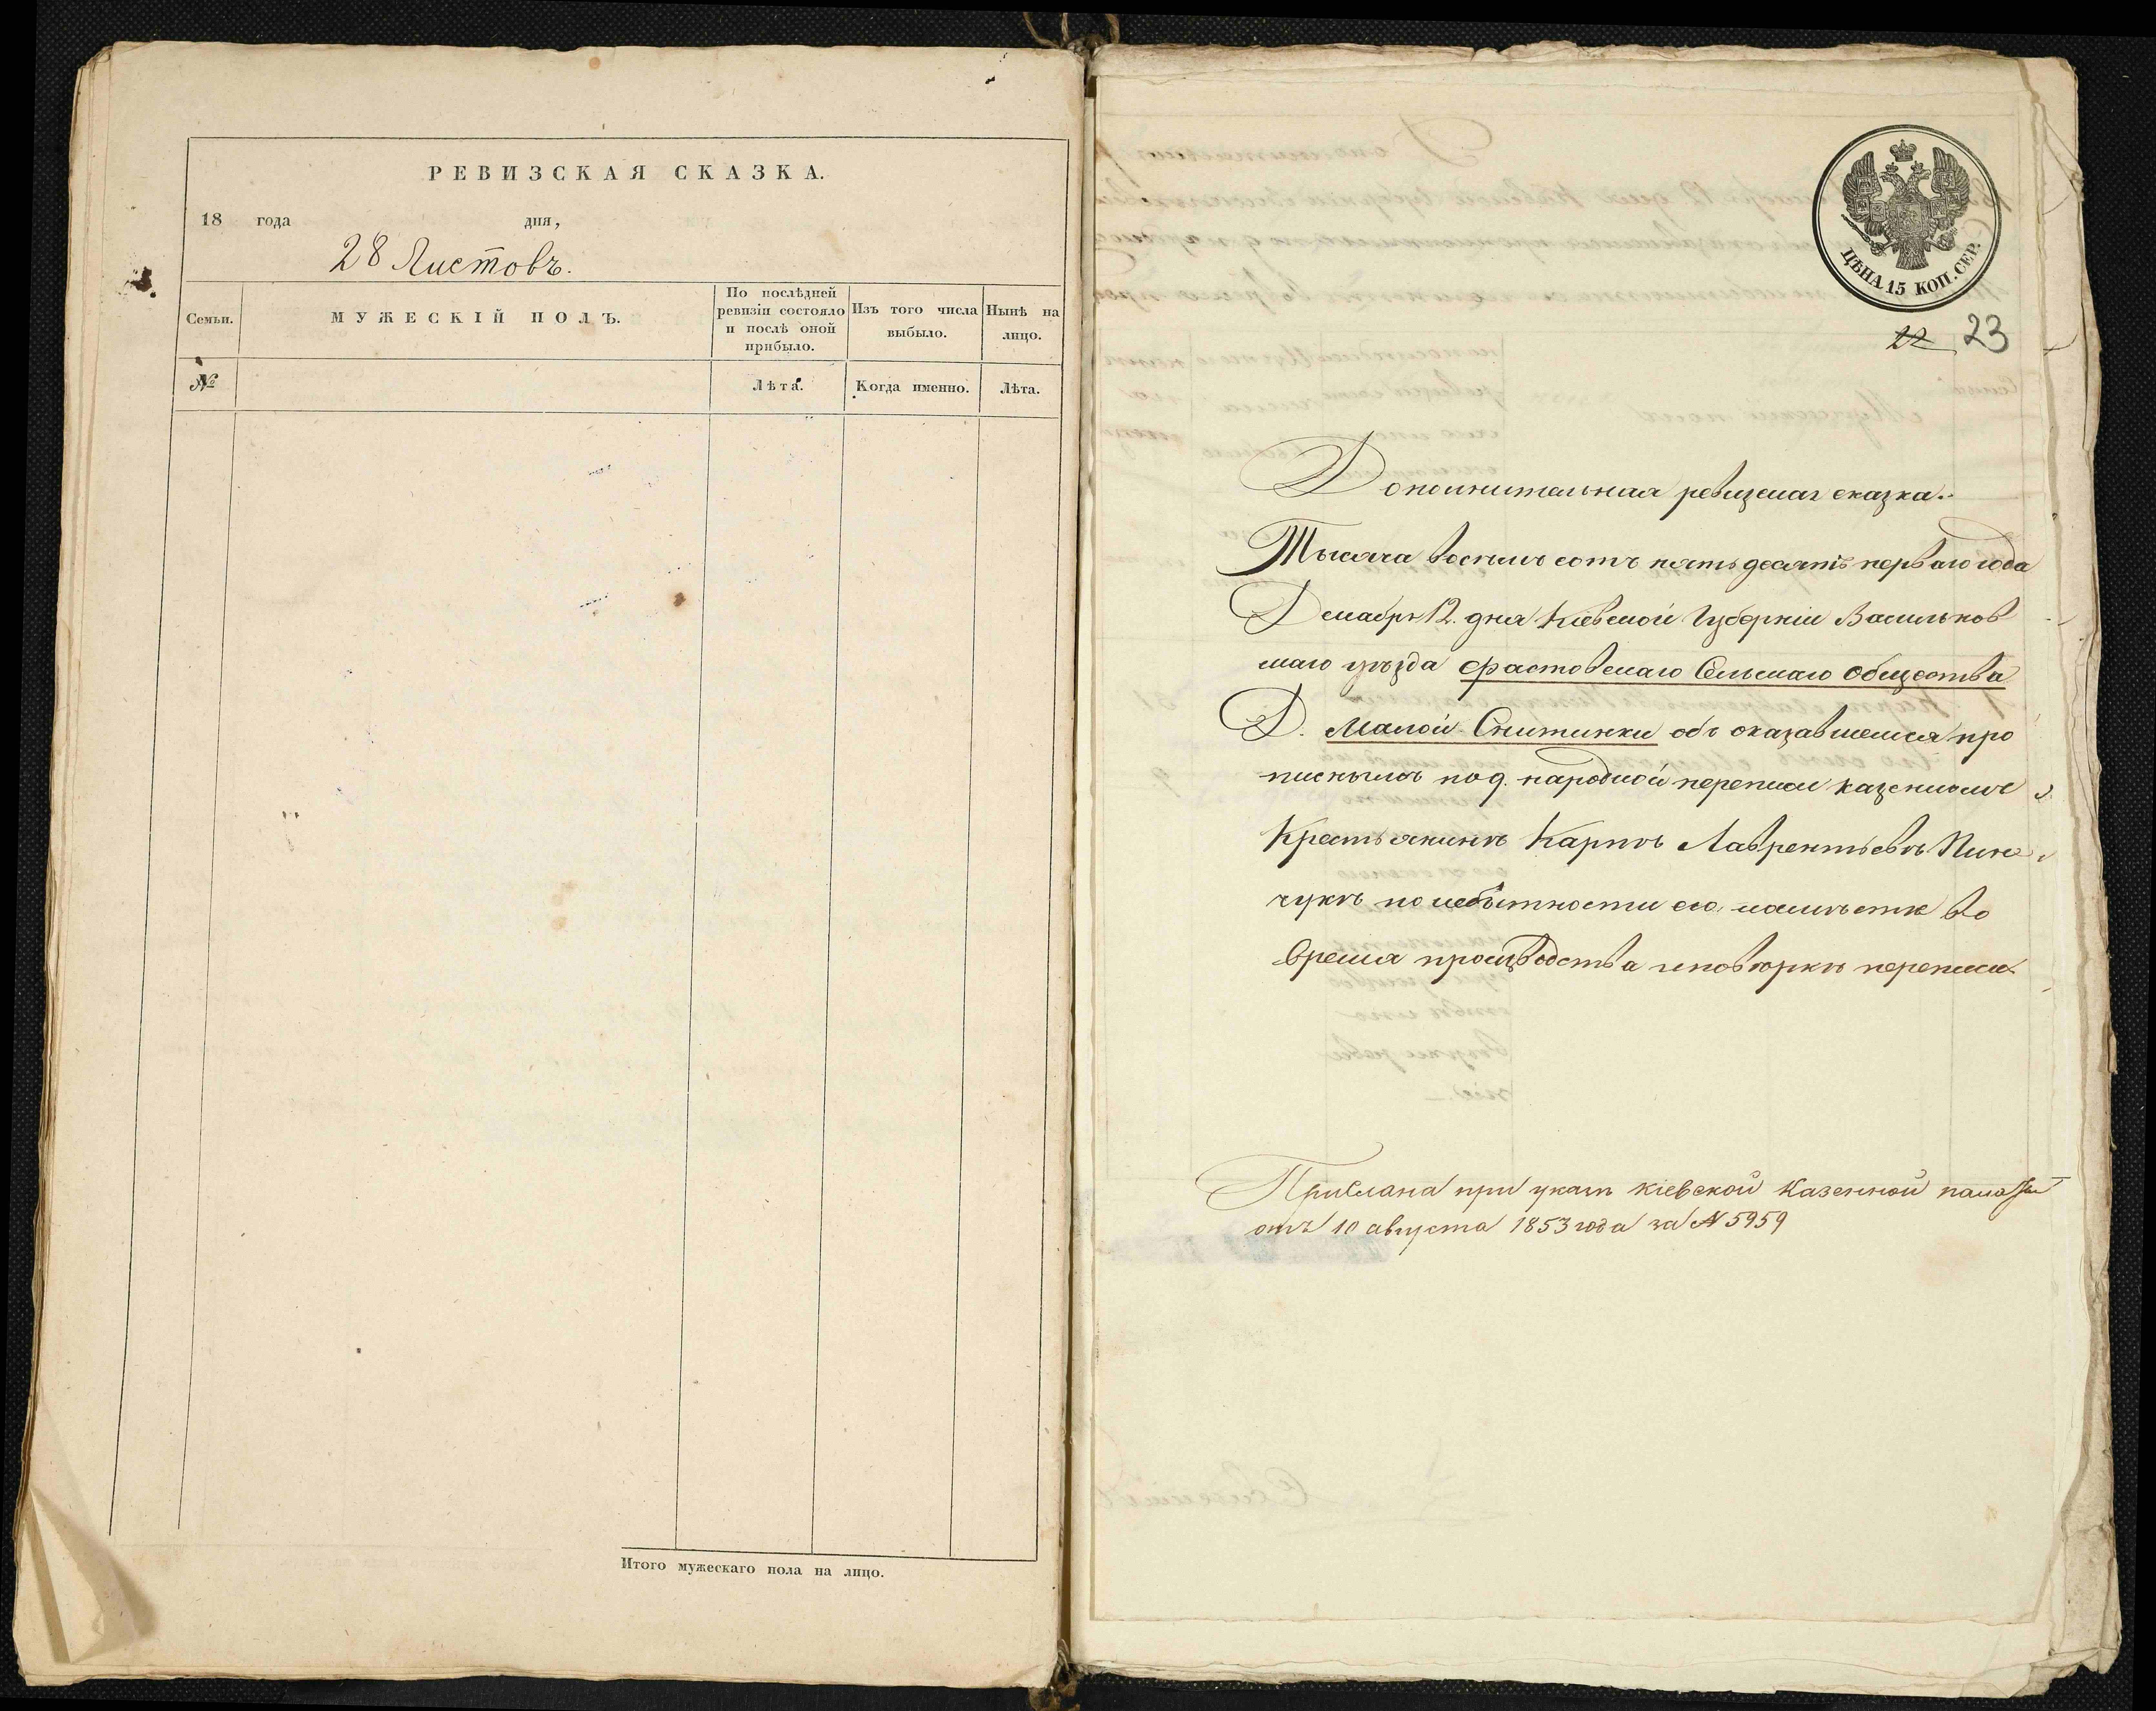 РЕВИЗСКАЯ СКАЗКА.
18 года дня,
28 Листовъ.
Семьи.
МУЖЕСКІЙ ПОЛЪ.
По послѣдней
ревизіи состояло
и послѣ оной
прибыло.
Изъ того числа
выбыло.
Нынѣ на
лицо.
№
Лѣта.
Когда именно.
Лѣта.
Итого мужескаго пола на лицо.
ЦѢНА 15 КОП. СЕР.
22 23
Дополнительная ревизская сказка.
Тысяча восемь сотъ пятьдесятъ перваго года
Декабря 12. дня Кіевской Губерніи Васильков
скаго уѣзда Фастовскаго Сельскаго Общества
Д. Малой Снитинки объ оказавшемся про
писнымъ по 9. народной переписи казенномъ
Крестьянинѣ Карпѣ Лаврентьевѣ Пин
чукѣ по небытности его намѣстѣ во
время производства и повѣркѣ переписи.
Прислана при указѣ Кіевской Казенной палаты
отъ 10 августа 1853 года за № 5959